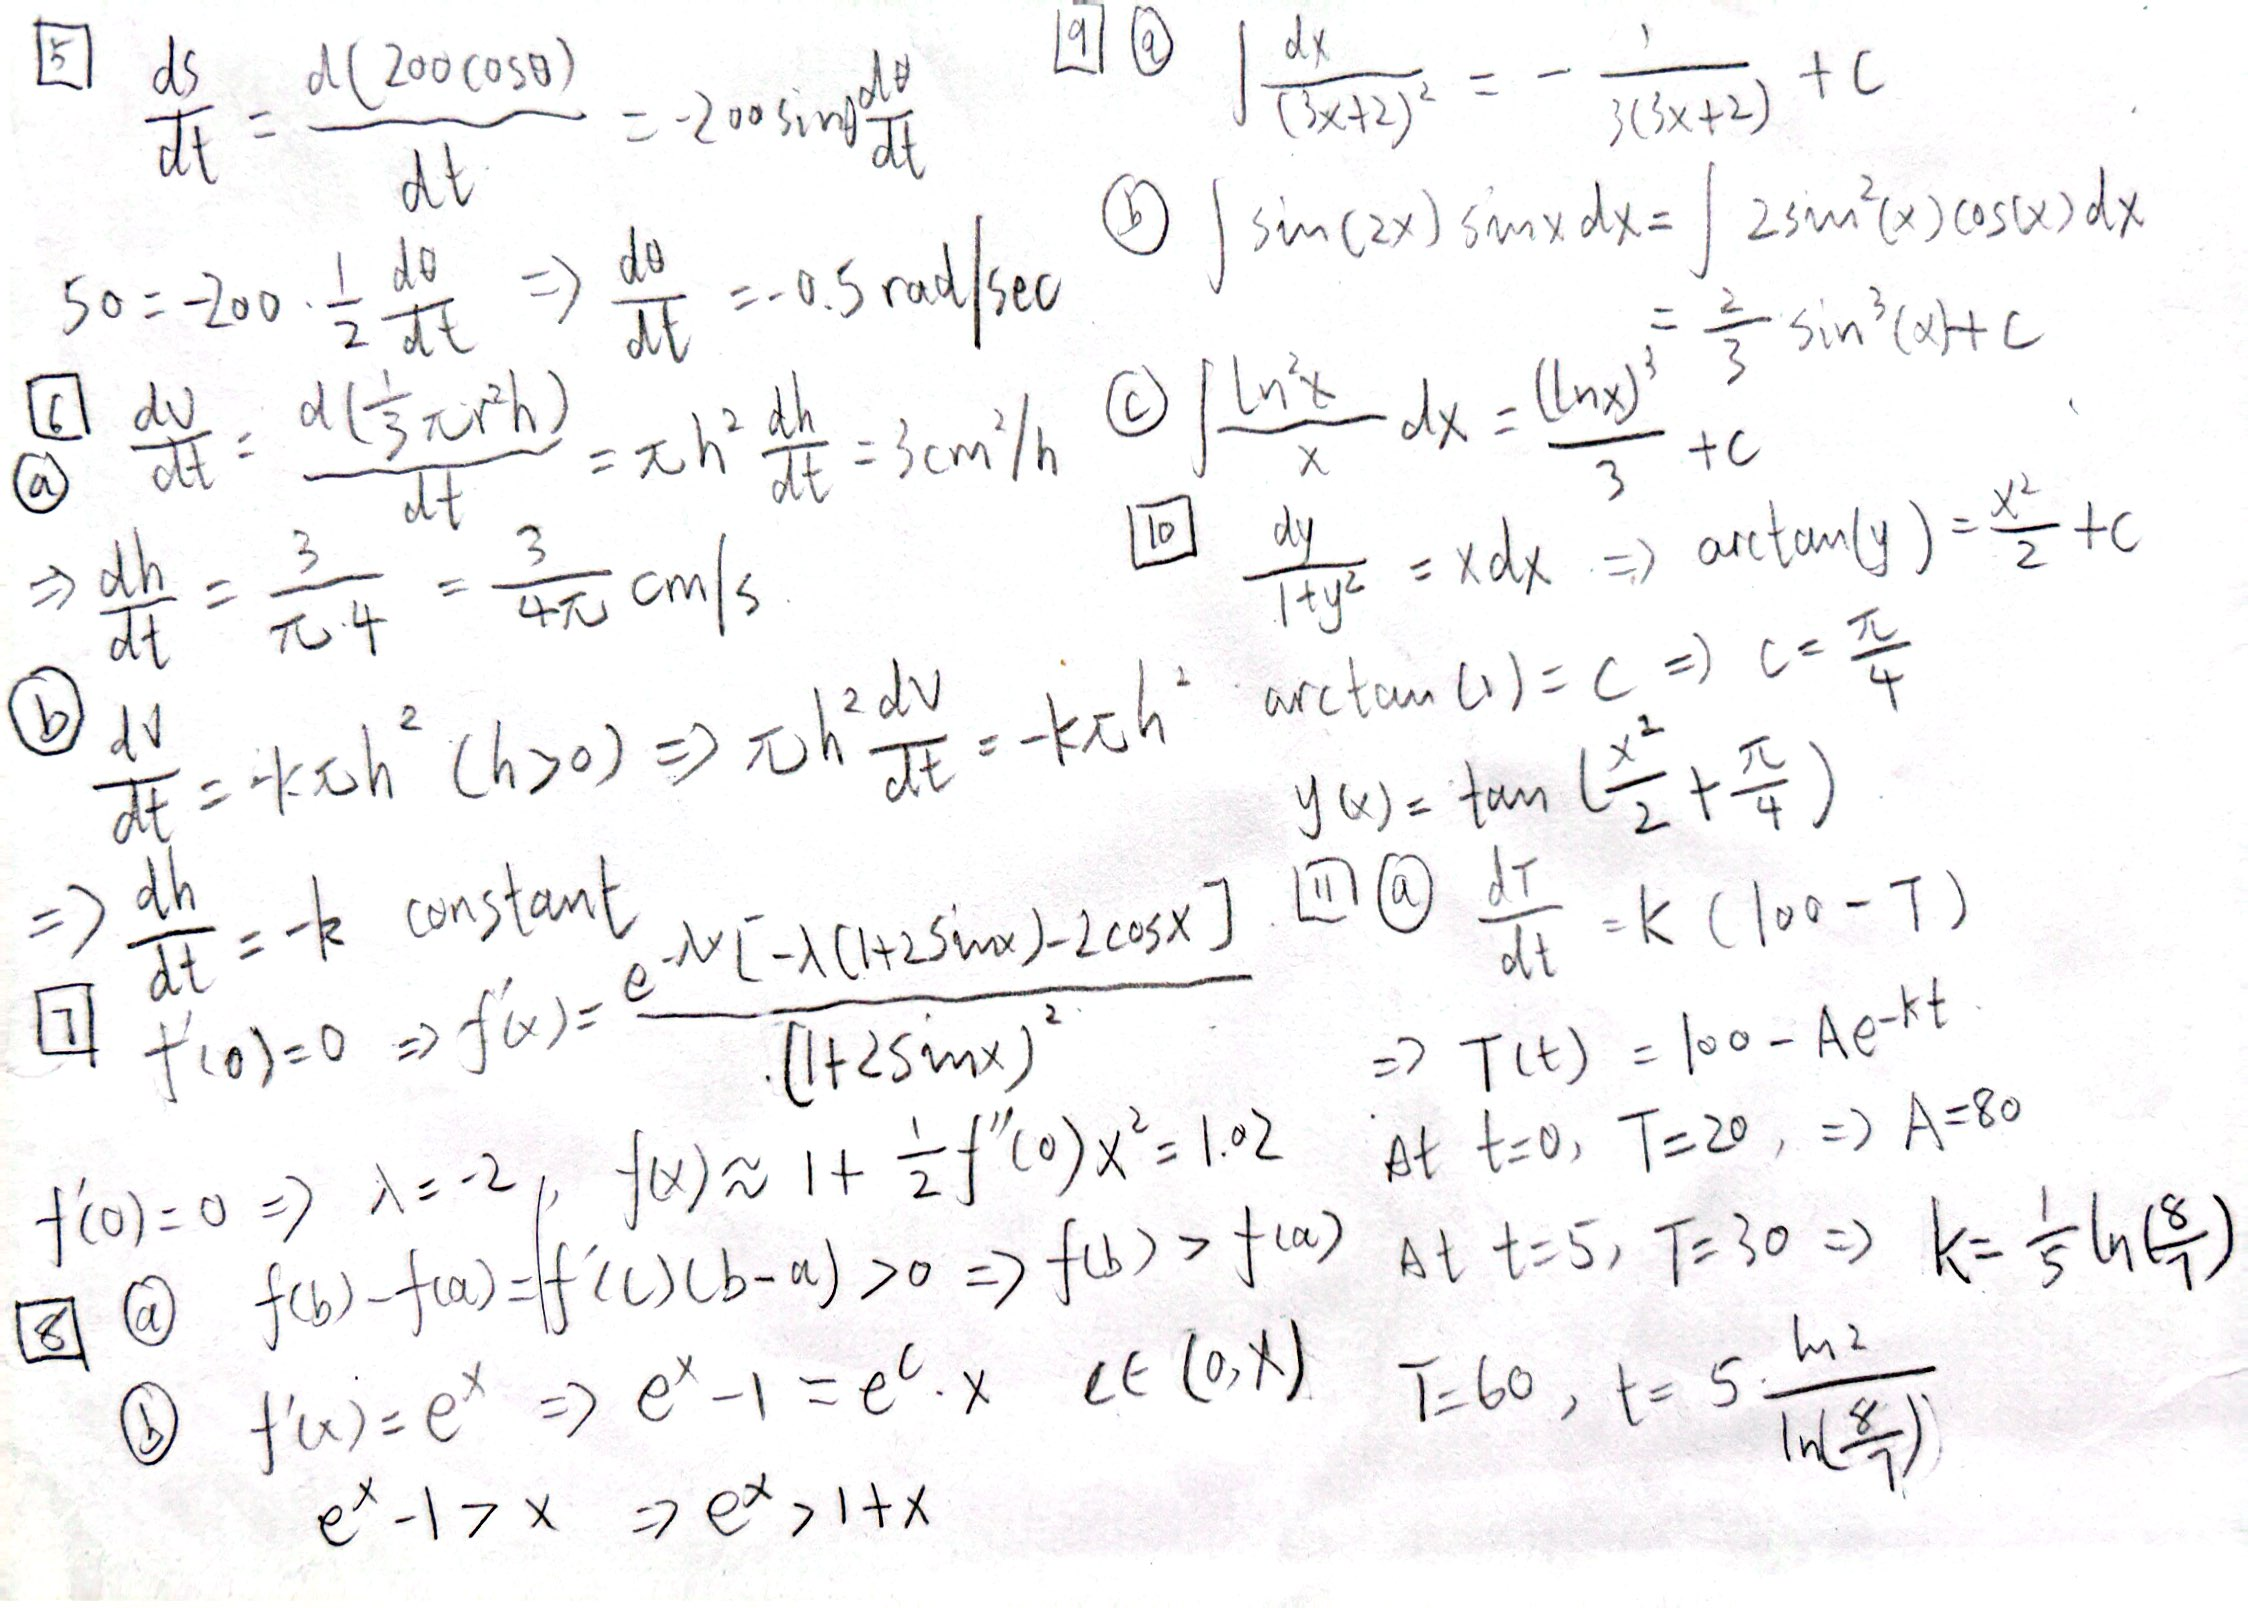 5 ds/dt = d(200cosθ)/dt = -200sinθ dθ/dt
50 = -200 · 1/2 dθ/dt => dθ/dt = -0.5 rad/sec
6 a dV/dt = d(1/3 πr²h)/dt = πh² dh/dt = 3cm²/h
=> dh/dt = 3/(π·4) = 3/(4π) cm/s.
b dV/dt = -kπh² (h>0) => πh² dV/dt = -kπh²
=> dh/dt = -k constant
7 f'(0)=0 => f'(x) = e^(-λx)[-λ(1+2sinx)-2cosx]/(1+2sinx)²
f'(0)=0 => λ=-2, f(x) ≈ 1 + 1/2 f''(0)x² = 1.02
8 a f(b)-f(a) = f'(c)(b-a) >0 => f(b) > f(a)
b f'(x) = e^x => e^x - 1 = e^c · x c∈(0,x)
e^x - 1 > x => e^x > 1+x
9 a ∫ dx/(3x+2)² = - 1/(3(3x+2)) + C
b ∫ sin(2x) sinx dx = ∫ 2sin²(x)cos(x)dx
= 2/3 sin³(x)+C
c ∫ ln²x/x dx = (lnx)³/3 + C
10 dy/(1+y²) = xdx => arctan(y) = x²/2 + C
arctan(1) = C => C = π/4
y(x) = tan(x²/2 + π/4)
11 a dT/dt = K(100-T)
=> T(t) = 100 - Ae^(-kt)
At t=0, T=20, => A=80
At t=5, T=30 => k = 1/5 ln(8/7)
T=60, t = 5·ln2/ln(8/7)